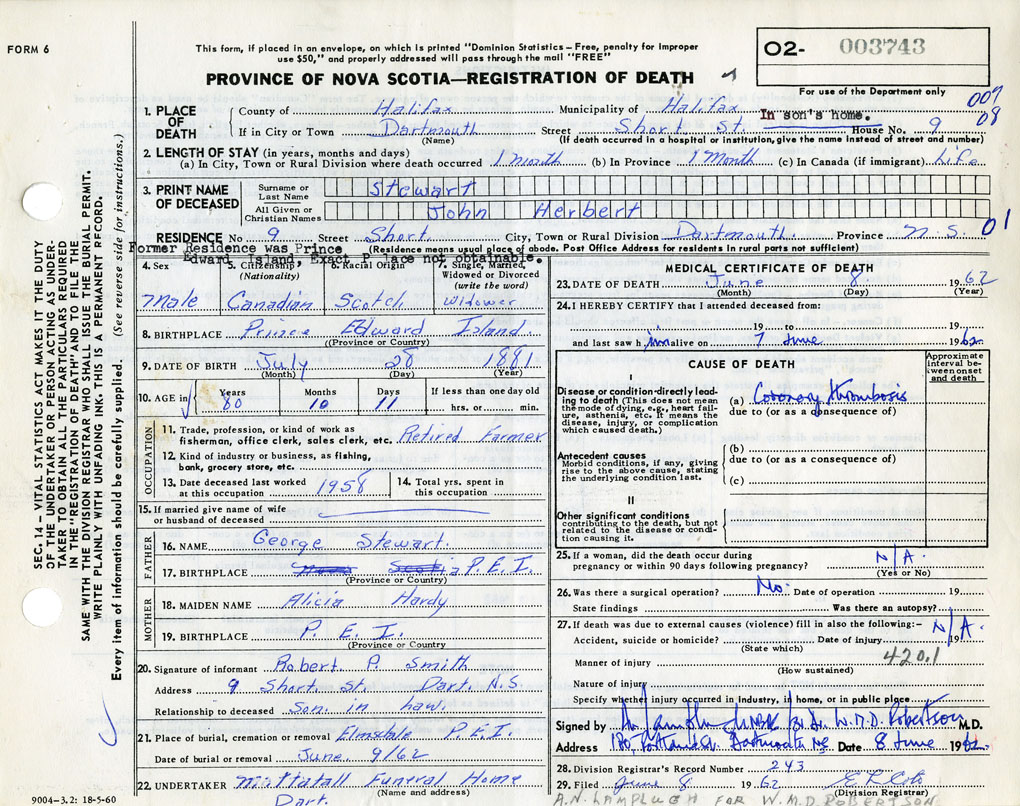 FORM 6
This form, if placed in an envelope, on which is printed "Dominion Statistics – Free, penalty for improper
use $50," and properly addressed will pass through the mail "FREE"
PROVINCE OF NOVA SCOTIA—REGISTRATION OF DEATH
O2- 003743
For use of the Department only
007
08
1. PLACE OF DEATH
County of Halifax Municipality of Halifax
In son's home.
If in City or Town Dartmouth Street Short St. House No. 9
(Name) (If death occurred in a hospital or institution, give the name instead of street and number)
2. LENGTH OF STAY (in years, months and days)
(a) In City, Town or Rural Division where death occurred 1 month (b) In Province 1 Month (c) In Canada (if immigrant) Life
3. PRINT NAME OF DECEASED
Surname or Last Name Stewart
All Given or Christian Names John Herbert
RESIDENCE No 9 Street Short City, Town or Rural Division Dartmouth Province N.S. 01
Former Residence was Prince (Residence means usual place of abode. Post Office Address for residents in rural parts not sufficient)
Edward Island, Exact P lace not obtainable.
4. Sex 5. Citizenship (Nationality) 6. Racial Origin 7. Single, Married, Widowed or Divorced (write the word)
Male Canadian Scotch Widower
8. BIRTHPLACE Prince Edward Island.
(Province or Country)
9. DATE OF BIRTH July 28 1881
(Month) (Day) (Year)
10. AGE in Years Months Days If less than one day old
80 10 11 hrs. or min.
OCCUPATION
11. Trade, profession, or kind of work as
fisherman, office clerk, sales clerk, etc. Retired Farmer
12. Kind of industry or business, as fishing,
bank, grocery store, etc.
13. Date deceased last worked
at this occupation 1958
14. Total yrs. spent in
this occupation
15. If married give name of wife
or husband of deceased
FATHER
16. NAME George Stewart.
17. BIRTHPLACE Nova Scotia P.E.I.
(Province or Country)
MOTHER
18. MAIDEN NAME Alicia Hardy
19. BIRTHPLACE P. E. I.
(Province or Country
20. Signature of informant Robert P. Smith
Address 9 Short. St. Dart. N.S.
Relationship to deceased Son. in Law.
21. Place of burial, cremation or removal Elmsdale P.E.I.
Date of burial or removal June 9/62
22. UNDERTAKER Mattatall Funeral Home
(Name and address)
Dart.
9004-3.2: 18-5-60
MEDICAL CERTIFICATE OF DEATH
23. DATE OF DEATH June 8 1962
(Month) (Day) (Year)
24. I HEREBY CERTIFY that I attended deceased from:
19 to 19
and last saw h im alive on 7 June 1962
CAUSE OF DEATH
Approximate interval between onset and death
I
Disease or condition directly leading to death (This does not mean the mode of dying, e.g., heart failure, asthenia, etc. It means the disease, injury, or complication which caused death.)
(a) Coronary thrombosis
due to (or as a consequence of)
Antecedent causes
Morbid conditions, if any, giving rise to the above cause, stating the underlying condition last.
(b)
due to (or as a consequence of)
(c)
II
Other significant conditions
contributing to the death, but not related to the disease or condition causing it.
25. If a woman, did the death occur during
pregnancy or within 90 days following pregnancy? N/A.
(Yes or No)
26. Was there a surgical operation? No. Date of operation 19
State findings Was there an autopsy?
27. If death was due to external causes (violence) fill in also the following:–
N/A.
Accident, suicide or homicide? Date of injury 19
(State which) 420.1
Manner of injury
(How sustained)
Nature of injury
Specify whether injury occurred in industry, in home, or in public place
Signed by for Dr. W.M.D. Robertson M.D.
Address 180, Portland St. Dartmouth NS Date 8 June 1962
28. Division Registrar's Record Number 243
29. Filed June 8 1962
(Division Registrar)
A.N. LAMPLUGH FOR W.M.D ROBERTSON
SEC. 14 – VITAL STATISTICS ACT MAKES IT THE DUTY
OF THE UNDERTAKER OR PERSON ACTING AS UNDER-
TAKER TO OBTAIN ALL THE PARTICULARS REQUIRED
IN THE "REGISTRATION OF DEATH" AND TO FILE THE
SAME WITH THE DIVISION REGISTRAR WHO SHALL ISSUE THE BURIAL PERMIT.
WRITE PLAINLY WITH UNFADING INK. THIS IS A PERMANENT RECORD.
Every item of information should be carefully supplied. (See reverse side for instructions.)